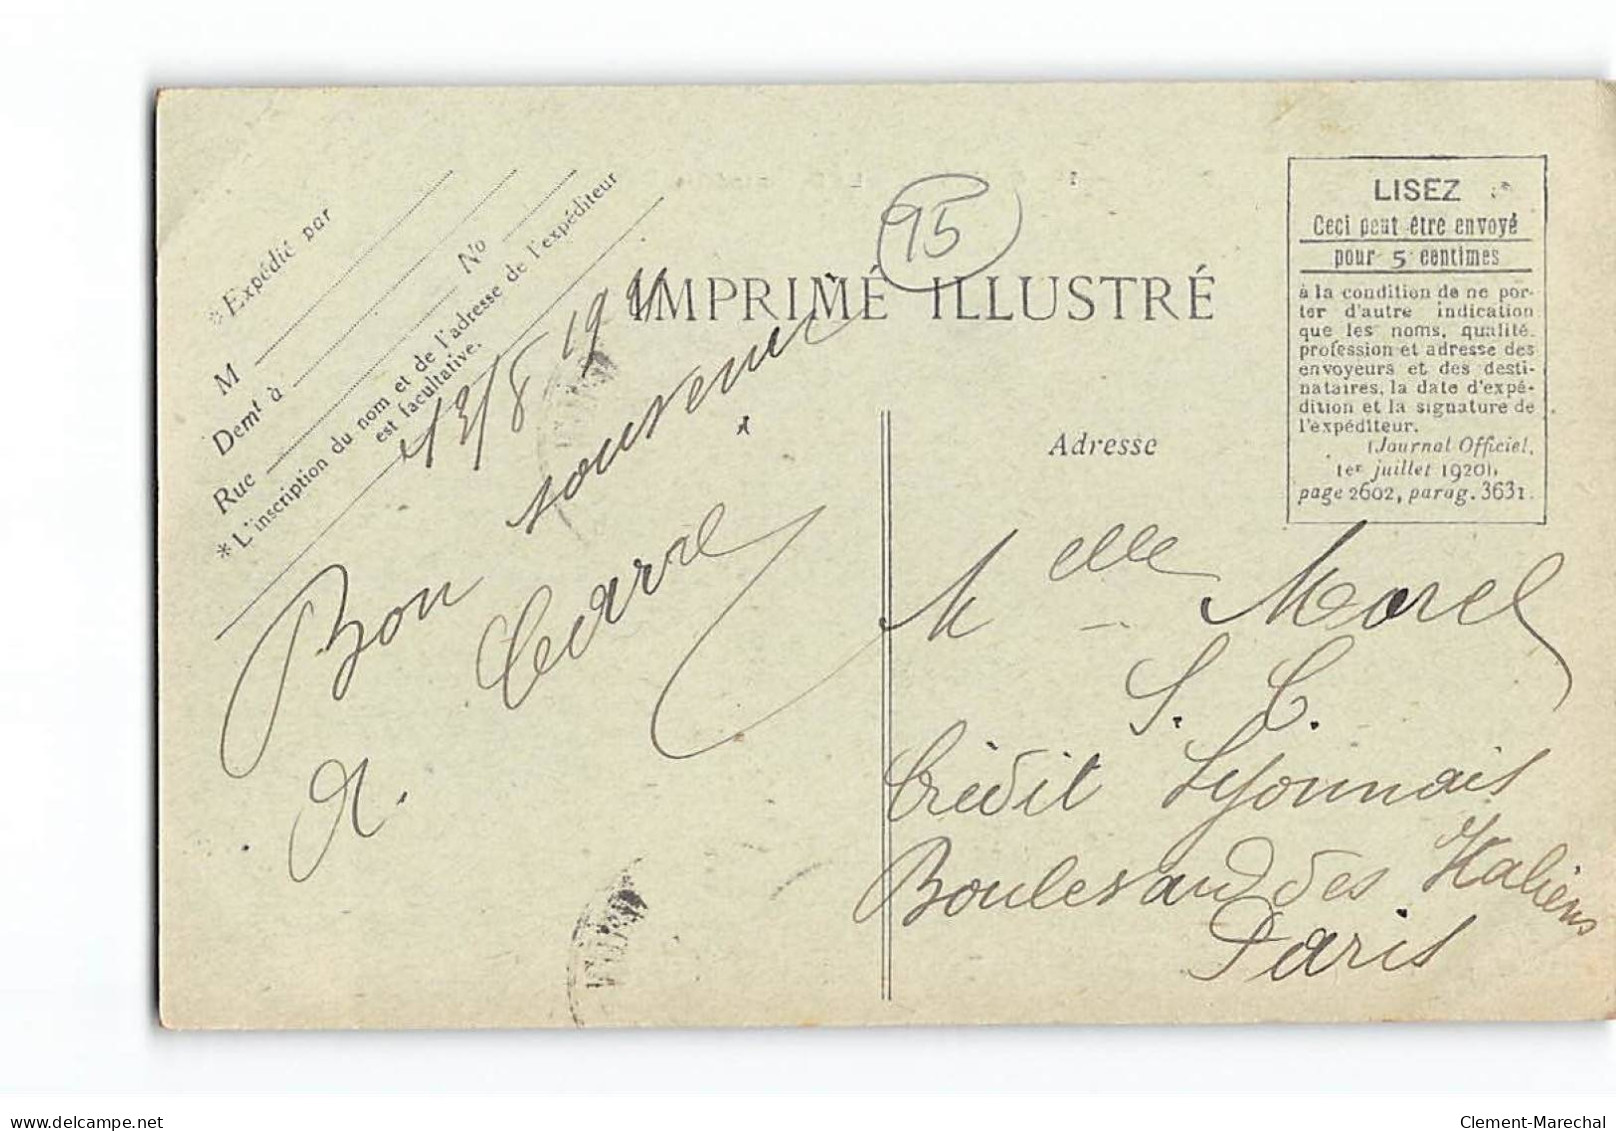 * Expédié par
M
Demt à
Rue No
* L'inscription du nom et de l'adresse de l'expéditeur
est facultative.
13/8 19
Bon souvenir
A. Carre
95
IMPRIMÉ ILLUSTRÉ
Adresse
LISEZ
Ceci peut être envoyé
pour 5 centimes
à la condition de ne por-
ter d'autre indication
que les noms, qualité,
profession et adresse des
envoyeurs et des desti-
nataires, la date d'expé-
dition et la signature de
l'expéditeur.
(Journal Officiel,
1er juillet 1920),
page 2602, parag. 3631.
Melle Morel
S. C.
Crédit Lyonnais
Boulevard des Italiens
Paris
delcampe.net
Clement-Marechal